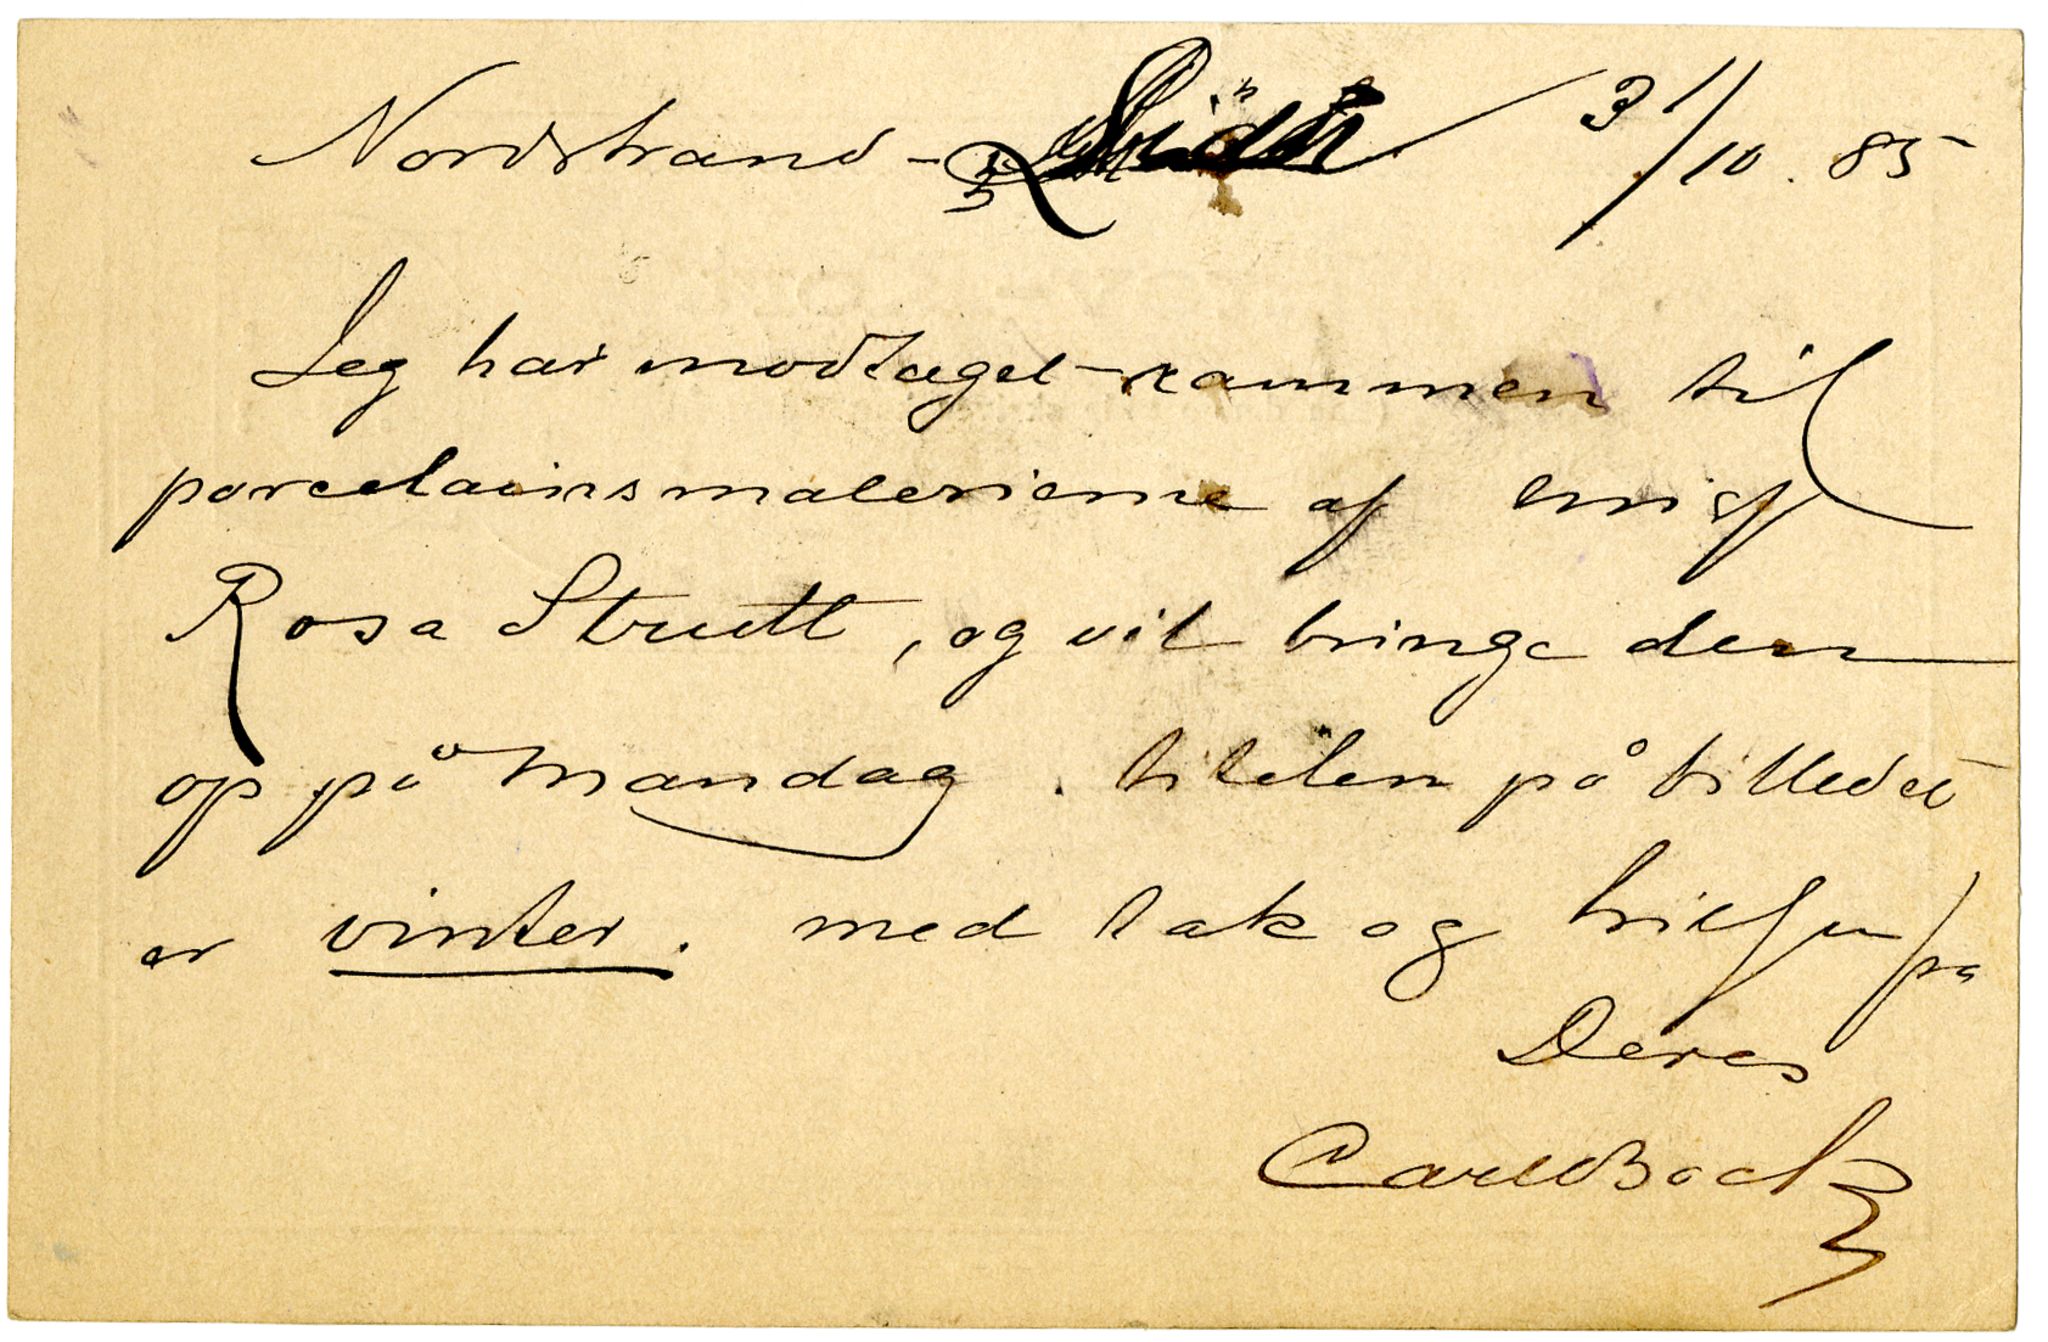 Nordstrand - 31/10. 85
Jeg har modtaget rammen til
porcelainsmalerierne af miss
Rosa Strutt, og vil bringe den
op på mandag. titelen på billedet
er vinter. med tak og hilsen fra
Deres
Carl Bock